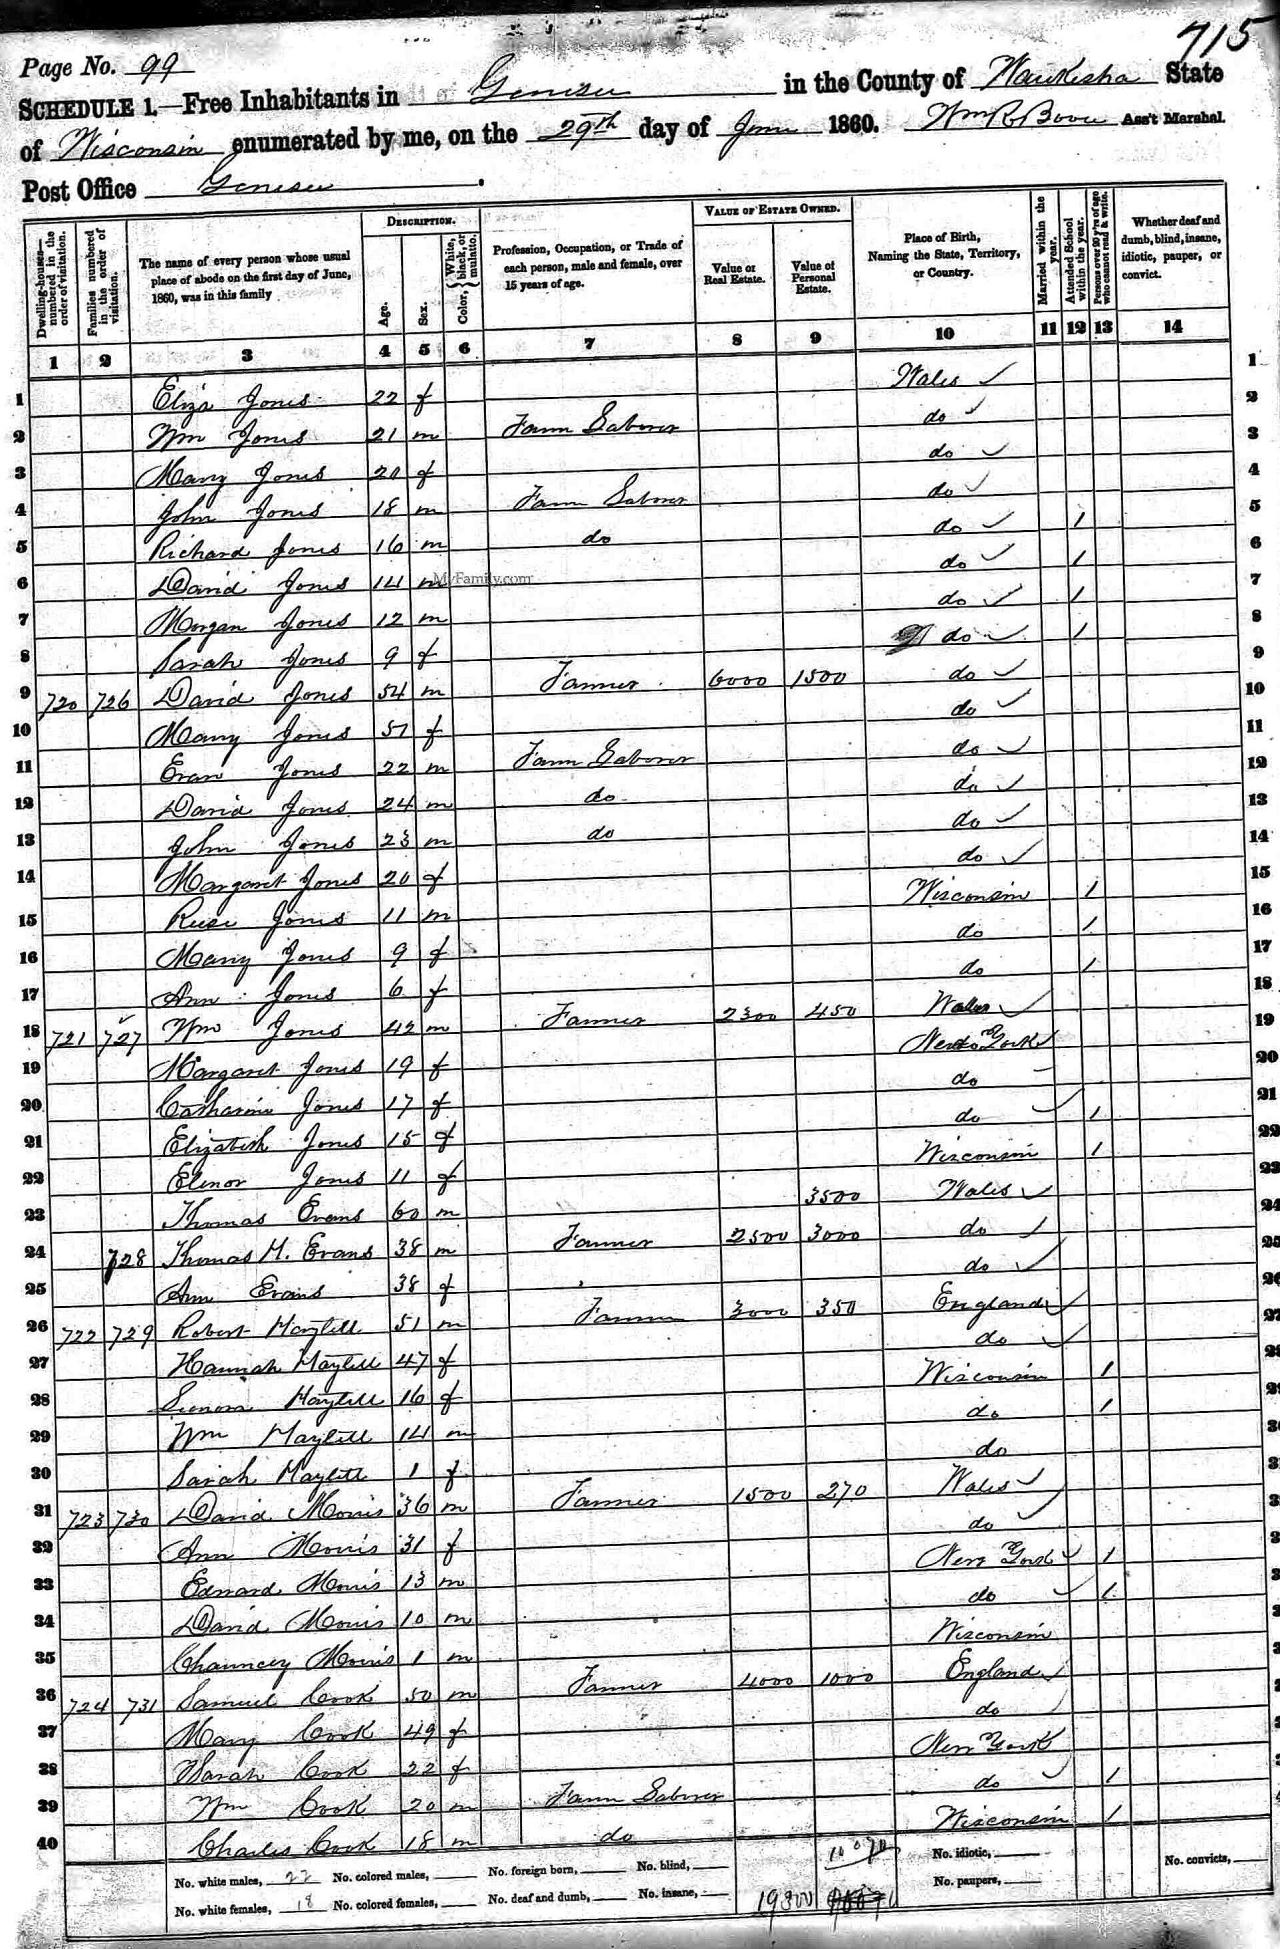 715
Page No. 99
SCHEDULE 1.—Free Inhabitants in Genesee in the County of Waukesha State
of Wisconsin enumerated by me, on the 29th day of June 1860. Wm R Bovee Ass't Marshal.
Post Office Genesee.
Dwelling-houses—numbered in the order of visitation.
Families numbered in the order of visitation.
The name of every person whose usual place of abode on the first day of June, 1860, was in this family
DESCRIPTION.
Age.
Sex.
Color, { White, black, or mulatto.
Profession, Occupation, or Trade of each person, male and female, over 15 years of age.
VALUE OF ESTATE OWNED.
Value of Real Estate.
Value of Personal Estate.
Place of Birth, Naming the State, Territory, or Country.
Married within the year.
Attended School within the year.
Persons over 20 y'rs of age who cannot read & write.
Whether deaf and dumb, blind, insane, idiotic, pauper, or convict.
1 2 3 4 5 6 7 8 9 10 11 12 13 14
1 Eliza Jones 22 f Wales ✓ 1
2 Wm Jones 21 m Farm Laborer do ✓ 2
3 Mary Jones 20 f do ✓ 3
4 John Jones 18 m Farm Laborer do ✓ 4
5 Richard Jones 16 m do do ✓ 1 5
6 David Jones 14 m do ✓ 1 6
MyFamily.com
7 Morgan Jones 12 m do ✓ 1 7
8 Sarah Jones 9 f do ✓ 1 8
9 720 726 David Jones 54 m Farmer 6000 1500 do ✓ 9
10 Mary Jones 51 f do ✓ 10
11 Evan Jones 22 m Farm Laborer do ✓ 11
12 David Jones 24 m do do ✓ 12
13 John Jones 23 m do do ✓ 13
14 Margaret Jones 20 f do ✓ 14
15 Reese Jones 11 m Wisconsin 1 15
16 Mary Jones 9 f do 1 16
17 Ann Jones 6 f do 1 17
18 721 727 Wm Jones 42 m Farmer 2300 450 Wales ✓ 18
19 Margaret Jones 19 f New York ✓ 19
20 Catharine Jones 17 f do 20
21 Elizabeth Jones 15 f do ✓ 1 21
22 Elenor Jones 11 f Wisconsin 1 22
23 Thomas Evans 60 m 3500 Wales ✓ 23
24 728 Thomas M. Evans 38 m Farmer 2500 3000 do ✓ 24
25 Ann Evans 38 f do ✓ 25
26 722 729 Robert Maytell 51 m Farmer 3000 350 England ✓ 26
27 Hannah Maytell 47 f do ✓ 27
28 Maytell 16 f Wisconsin 1 28
29 Wm Maytell 14 m do 1
30 Sarah Maytell 1 f do
31 723 730 David Morris 36 m Farmer 1500 270 Wales ✓
32 Ann Morris 31 f do ✓
33 Edward Morris 13 m New York ✓ 1
34 David Morris 10 m do ✓ 1
35 Chauncey Morris 1 m Wisconsin
36 724 731 Samuel Cook 50 m Farmer 4000 1000 England ✓
37 Mary Cook 49 f do
38 Sarah Cook 22 f New York
39 Wm Cook 20 m Farm Laborer do ✓ 1
40 Charles Cook 18 m do Wisconsin 1
No. white males, 22 No. colored males, No. foreign born, No. blind, 10070 No. idiotic, No. convicts,
No. white females, 18 No. colored females, No. deaf and dumb, No. insane, 19300 No. paupers,